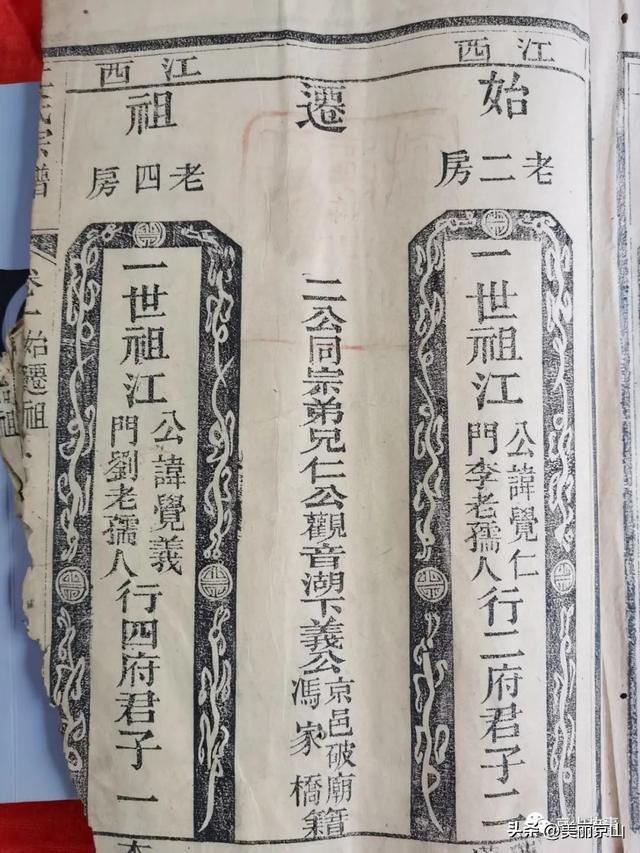 江西
始
老二房
一世祖江
公諱覺仁
門李老孺人
行二府君子二
遷
二公同宗弟兄仁公觀音湖下義公
京邑破廟
馮家橋
籍
江西
祖
老四房
一世祖江
公諱覺義
門劉老孺人
行四府君子一
氏宗譜
卷一始遷祖
头条 @美丽京山